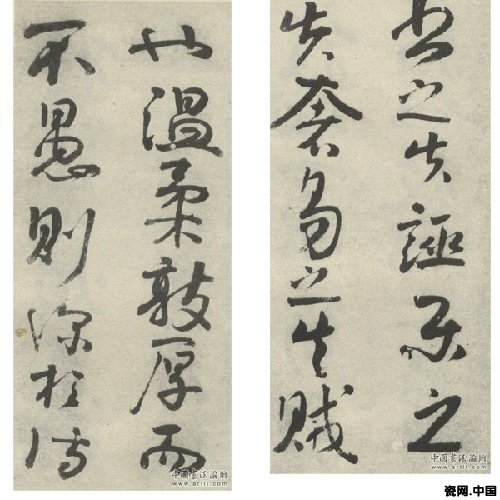 書之失誣樂之
失奢易之失賊
也温柔敦厚而
不愚則深於詩
中國書法論壇
中國書法論壇
瓷网.中国